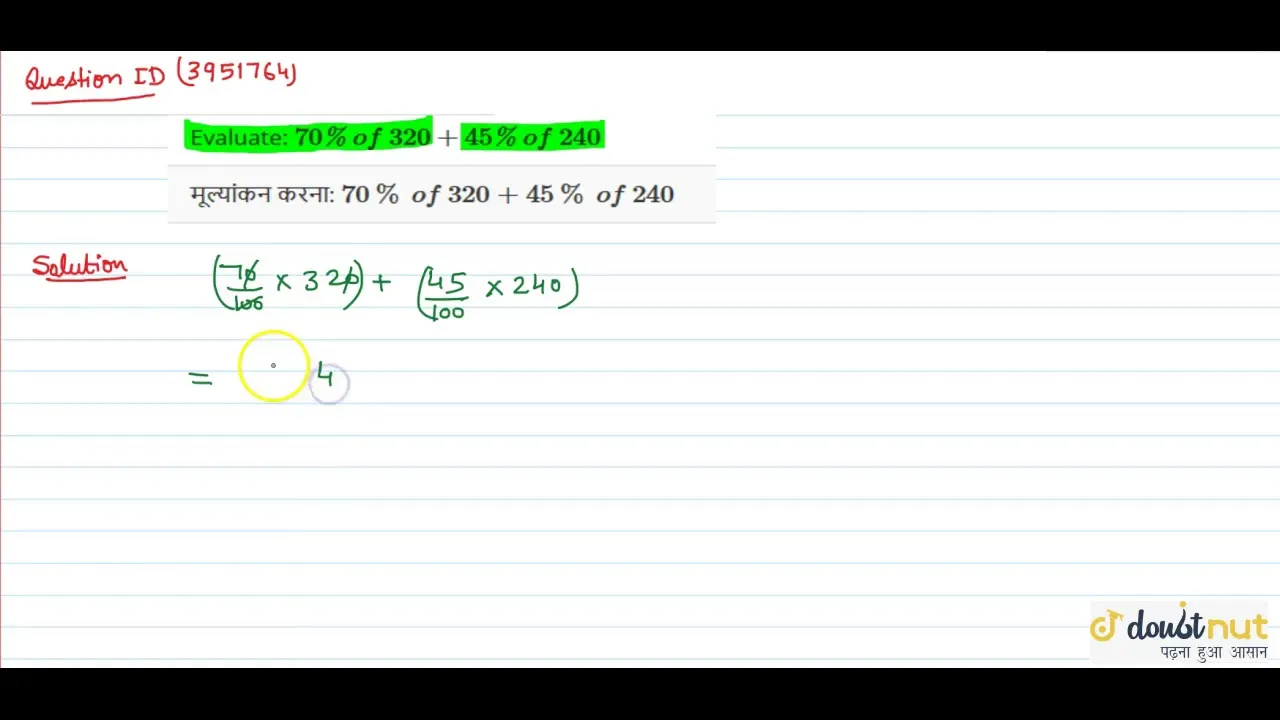 Question ID (3951764)
Evaluate: 70% of 320 + 45% of 240
मूल्यांकन करना: 70 % of 320 + 45 % of 240
Solution
(70/100 × 320) + (45/100 × 240)
= 4
doubtnut
पढ़ना हुआ आसान